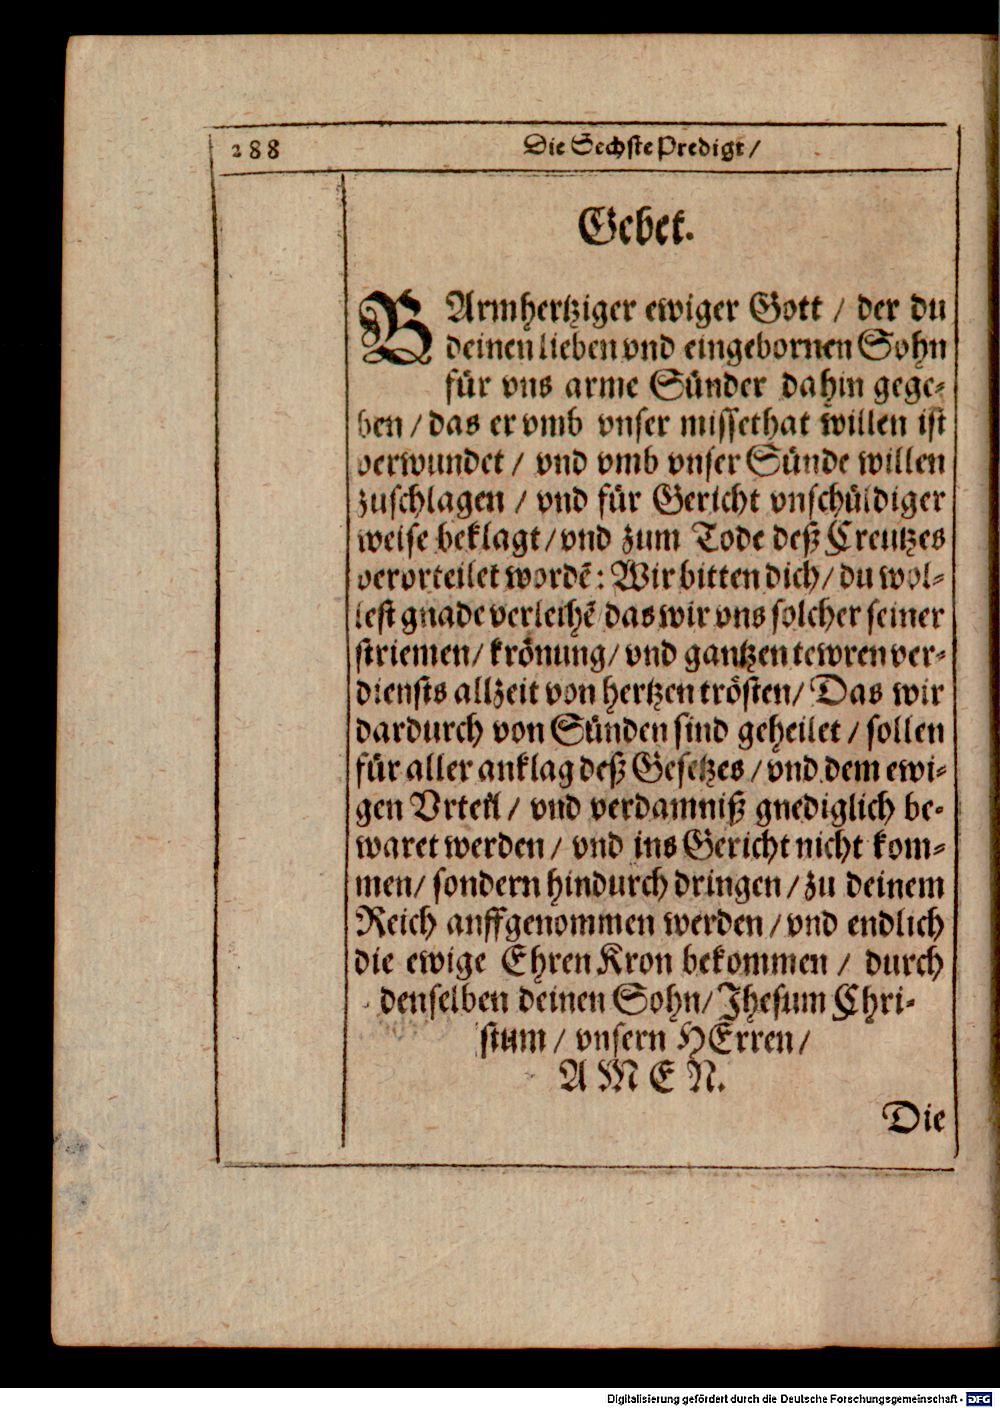 288
Die Sechste Predigt /
Gebet.
BArmhertziger ewiger Gott / der du
deinen lieben vnd eingebornen Sohn
für vns arme Sünder dahin gege-
ben / das er vmb vnser missethat willen ist
verwundet / vnd vmb vnser Sünde willen
zuschlagen / vnd für Gericht vnschüldiger
weise beklagt / vnd zum Tode deß Creutzes
verorteilet wordē: Wir bitten dich / du wol-
lest gnade verleihē das wir vns solcher seiner
striemen / krönung / vnd gantzen tewren ver-
diensts allzeit von hertzen trösten / Das wir
dardurch von Sünden sind geheilet / sollen
für aller anklag deß Gesetzes / vnd dem ewi-
gen Vrteil / vnd verdamniß gnediglich be-
waret werden / vnd ins Gericht nicht kom-
men / sondern hindurch dringen / zu deinem
Reich auffgenommen werden / vnd endlich
die ewige Ehren Kron bekommen / durch
denselben deinen Sohn / Jhesum Chri-
stum / vnsern HErren /
AMEN.
Die
Digitalisierung gefördert durch die Deutsche Forschungsgemeinschaft - DFG